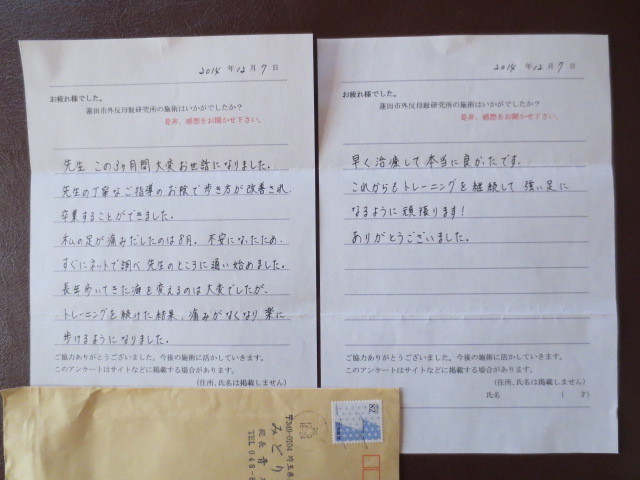 2014 年 12 月 7 日
お疲れ様でした。
蓮田市外反母趾研究所の施術はいかがでしたか?
是非、感想をお聞かせ下さい。
先生 この3ヶ月間大変お世話になりました。
先生の丁寧なご指導のお陰で歩き方が改善され、
卒業することができました。
私の足が痛みだしたのは8月。不安になったため、
すぐにネットで調べ先生のところに通い始めました。
長年歩いてきた癖を変えるのは大変でしたが、
トレーニングを続けた結果、痛みがなくなり 楽に
歩けるようになりました。
ご協力ありがとうございました。今後の施術に活かしていきます。
このアンケートはサイトなどに掲載する場合があります。
(住所、氏名は掲載しません)
2014 年 12 月 7 日
お疲れ様でした。
蓮田市外反母趾研究所の施術はいかがでしたか?
是非、感想をお聞かせ下さい。
早く治療して本当に良かったです。
これからもトレーニングを継続して 強い足に
なるように頑張ります!
ありがとうございました。
ご協力ありがとうございました。今後の施術に活かしていきます。
このアンケートはサイトなどに掲載する場合があります。
(住所、氏名は掲載しません)
氏名 ( 才)
82
〒349-0104 埼玉県
みどり
院長 青
TEL 048-